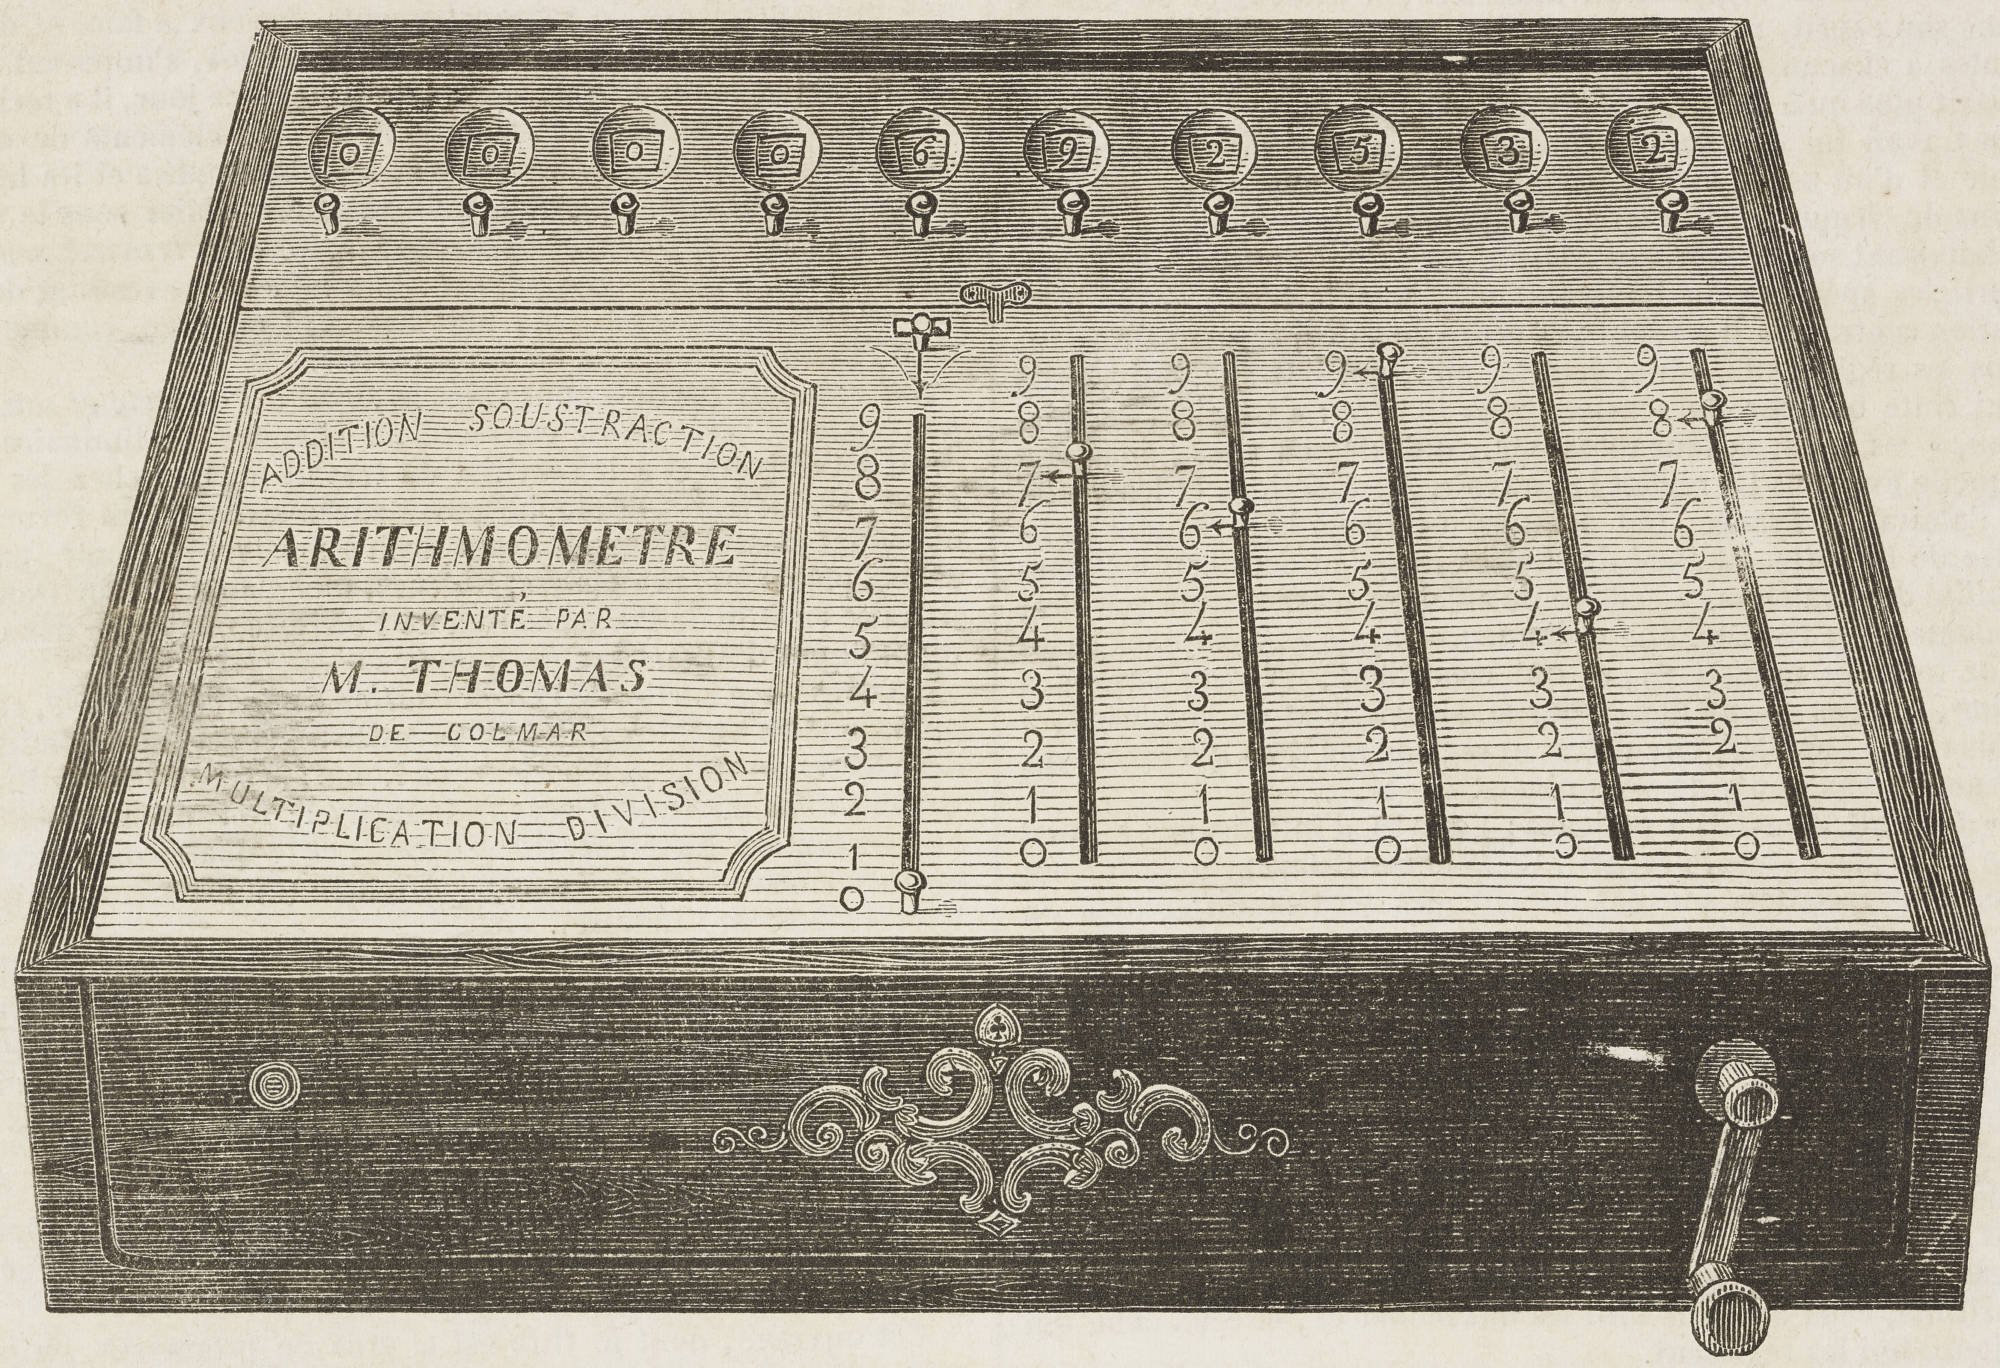 0 0 0 0 6 9 2 5 3 2
ADDITION SOUSTRACTION
ARITHMOMETRE
INVENTÉ PAR
M. THOMAS
DE COLMAR
MULTIPLICATION DIVISION
9 9 9 9 9 9
8 8 8 8 8 8
7 7 7 7 7 7
6 6 6 6 6 6
5 5 5 5 5 5
4 4 4 4 4 4
3 3 3 3 3 3
2 2 2 2 2 2
1 1 1 1 1 1
0 0 0 0 0 0